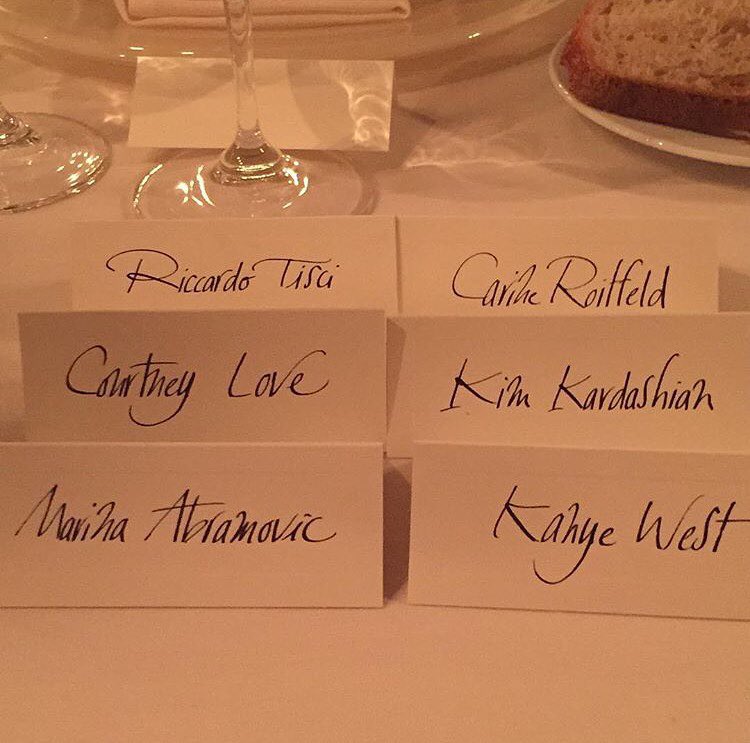 Riccardo Tisci
Carine Roitfeld
Courtney Love
Kim Kardashian
Marina Abramovic
Kanye West